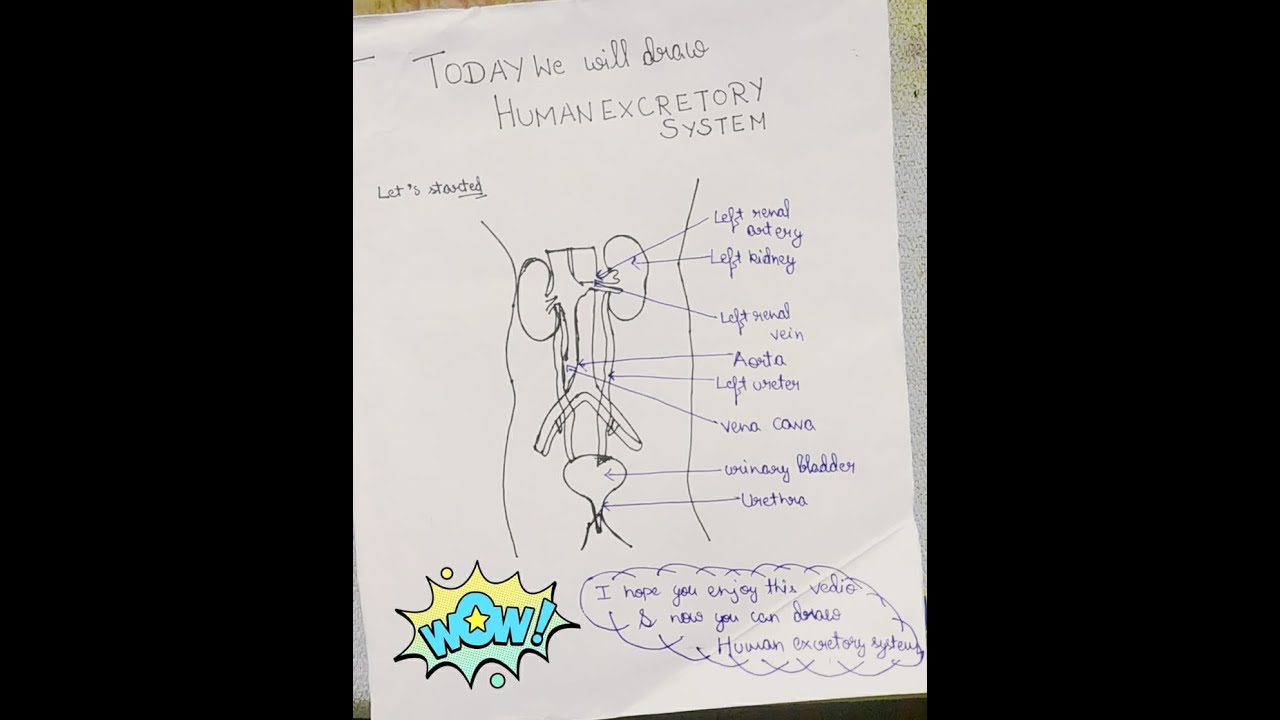 TODAY We will draw
HUMAN EXCRETORY
SYSTEM
Let's started
Left renal
artery
Left kidney
Left renal
vein
Aorta
Left ureter
vena cava
urinary bladder
Urethra
WOW!
I hope you enjoy this vedio
& now you can draw
Human excretory system